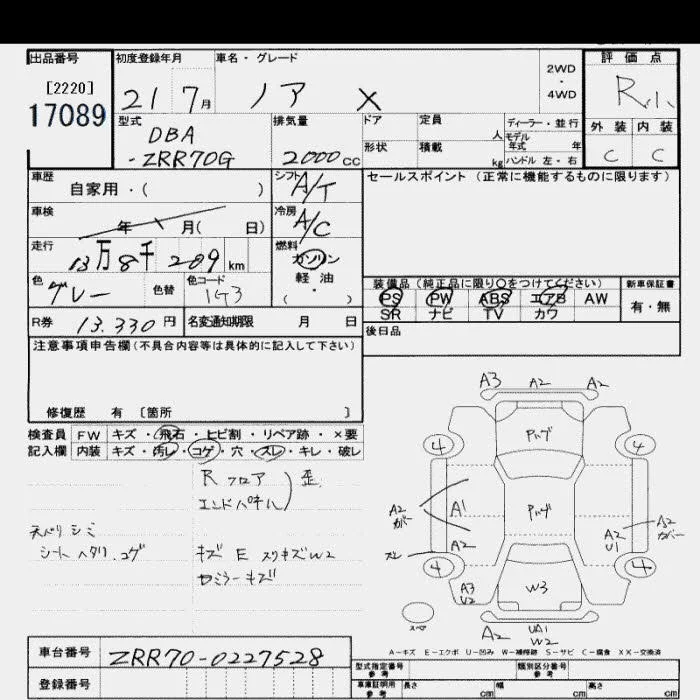 出品番号
[2220]
17089
初度登録年月
21 7月
車名・グレード
ノア X
2WD
・
4WD
評価点
R1.
外装 内装
C C
型式
DBA
-ZRR70G
排気量
2000CC
ドア
形状
定員 人
積載 kg
ディーラー・並行
モデル年式 年
ハンドル 左・右
車歴
自家用・( )
シフト
A/T
車検
年 月( 日)
冷房
A/C
走行
13万8千209km
燃料
ガソリン
軽油
( ・ )
色
グレー
色替
色コード
1G3
R券 13.330円
名変通知期限 月 日
セールスポイント(正常に機能するものに限ります)
装備品(純正品に限り○をつけてください)
PS PW ABS エアB AW
SR ナビ TV カワ
新車保証書
有・無
後日品
注意事項申告欄(不具合内容等は具体的に記入して下さい)
修復歴 有〔箇所 〕
検査員記入欄
FW キズ・飛石・ヒビ割・リペア跡・×要
内装 キズ・汚レ・コゲ・穴・ズレ・キレ・破レ
R フロア
エンドパネル
歪
天バリ シミ
シート ヘタリ.コゲ
キズ E スリキズW2
セミラーキズ
A3 A2 A2
4 4
Pハゲ
A2
カバー
A1
Pハゲ
A2
U1
A2
カバー
スレ
A2
4 4
A3
U2
W3
スペア
A2
UA1
W2
A-キズ E-エクボ U-凹み W-補修跡 S-サビ C-腐食 XX-交換済
車台番号 ZRR70-0227528
登録番号
型式指定番号
参考
類別区分番号
参考
車庫証明用
参考
長さ cm
幅 cm
高さ cm